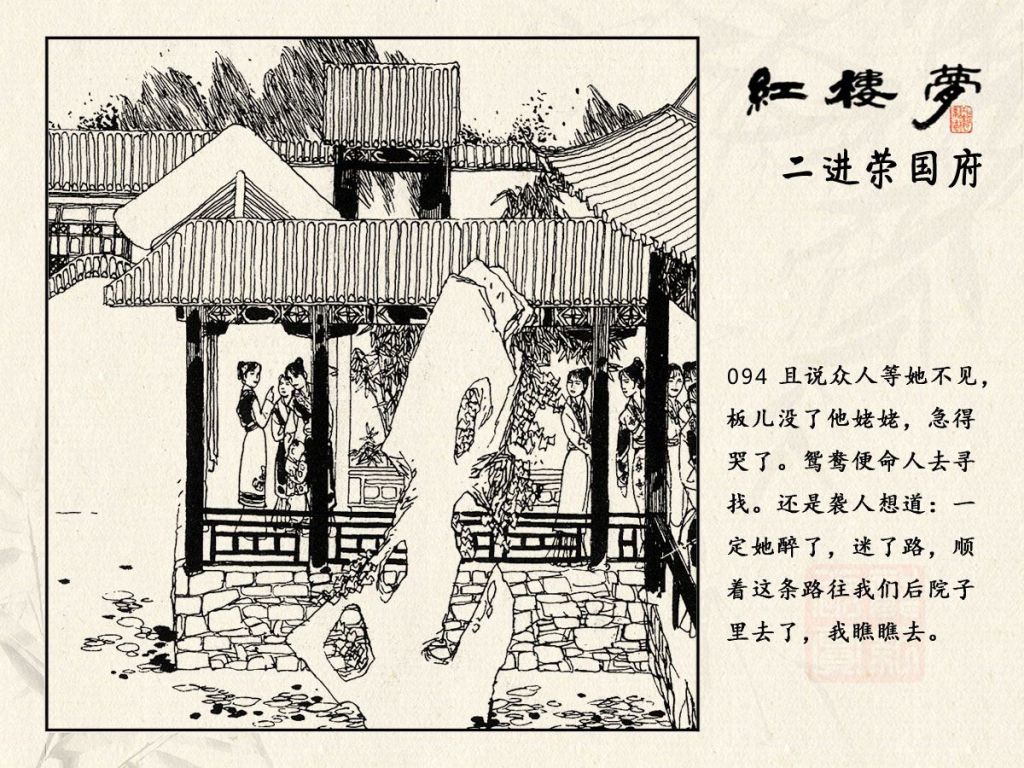 紅樓夢
二进荣国府
094 且说众人等她不见，
板儿没了他姥姥，急得
哭了。鸳鸯便命人去寻
找。还是袭人想道：一
定她醉了，迷了路，顺
着这条路往我们后院子
里去了，我瞧瞧去。